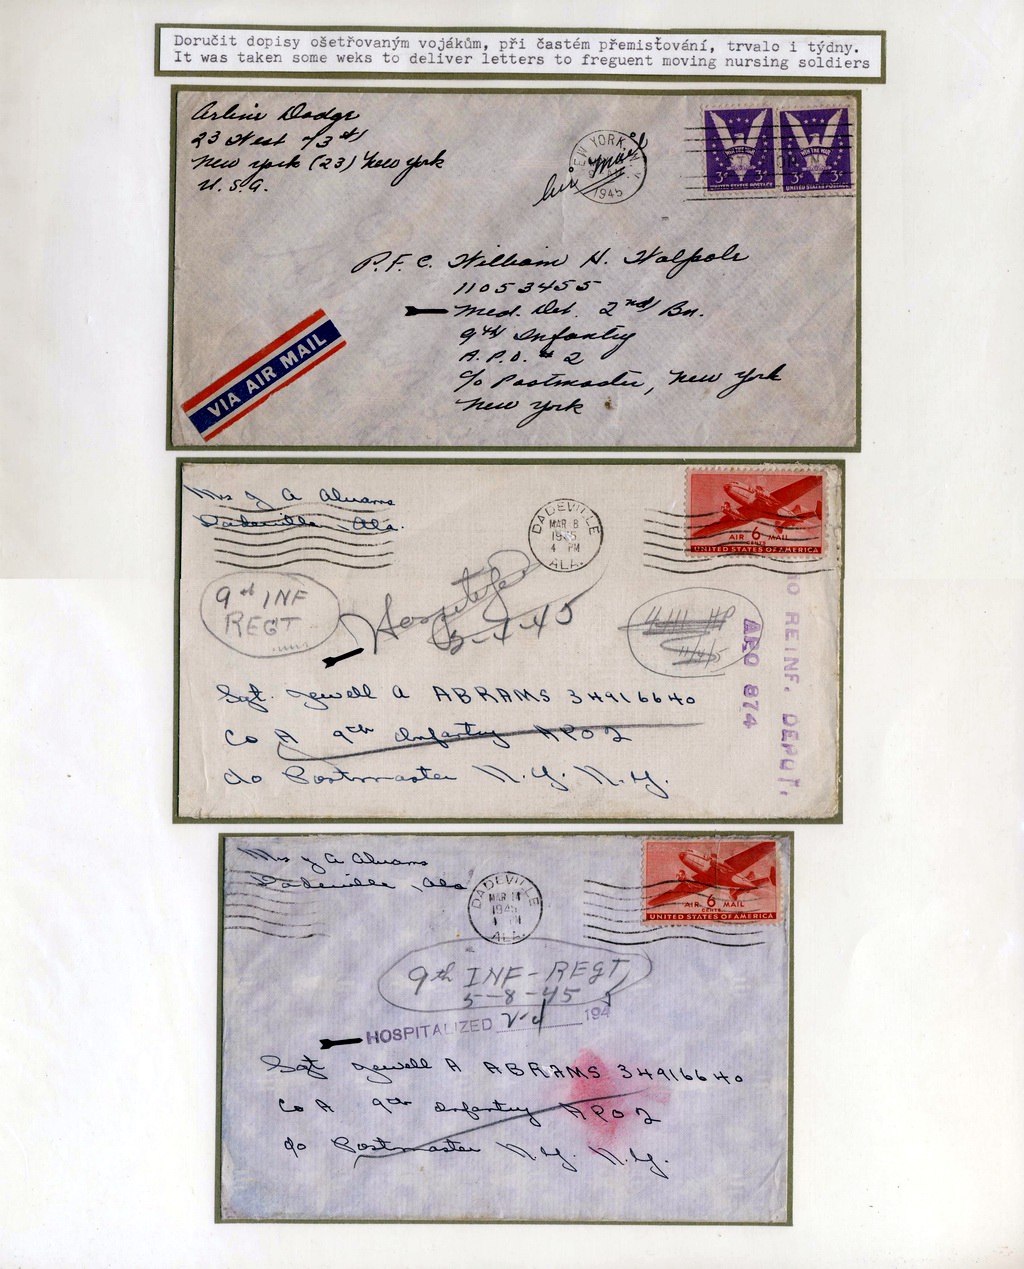 Doručit dopisy ošetřovaným vojákům, při častém přemisťování, trvalo i týdny.
It was taken some weks to deliver letters to freguent moving nursing soldiers
Arline Dodge
23 West 73rd
New York (23) New York
U.S.A.
Air Mail
NEW YORK, N.Y.
1945
WIN THE WAR
3¢ 3¢
UNITED STATES POSTAGE UNITED STATES POSTAGE
P.F.C. William H. Walpole
11053455
Med. Det. 2nd Bn.
9th Infantry
A.P.O. # 2
c/o Postmaster, New York
New York
VIA AIR MAIL
Mrs J A Abrams
Dadeville, Ala.
DADEVILLE
MAR 8
1945
4 PM
ALA.
AIR 6 MAIL
CENTS
UNITED STATES OF AMERICA
9th INF
REGT
Hospitalized
3-4-45
REINF. DEPOT,
APO 874
Sgt. Jewell A ABRAMS 34916640
Co A 9th Infantry APO 2
c/o Postmaster N.Y. N.Y.
Mrs J A Abrams
Dadeville, Ala
DADEVILLE
MAR
1945
PM
ALA.
AIR 6 MAIL
CENTS
UNITED STATES OF AMERICA
9th INF-REGT
5-8-45
HOSPITALIZED 194
Sgt Jewell A ABRAMS 34916640
Co A 9th Infantry APO 2
c/o Postmaster N.Y. N.Y.